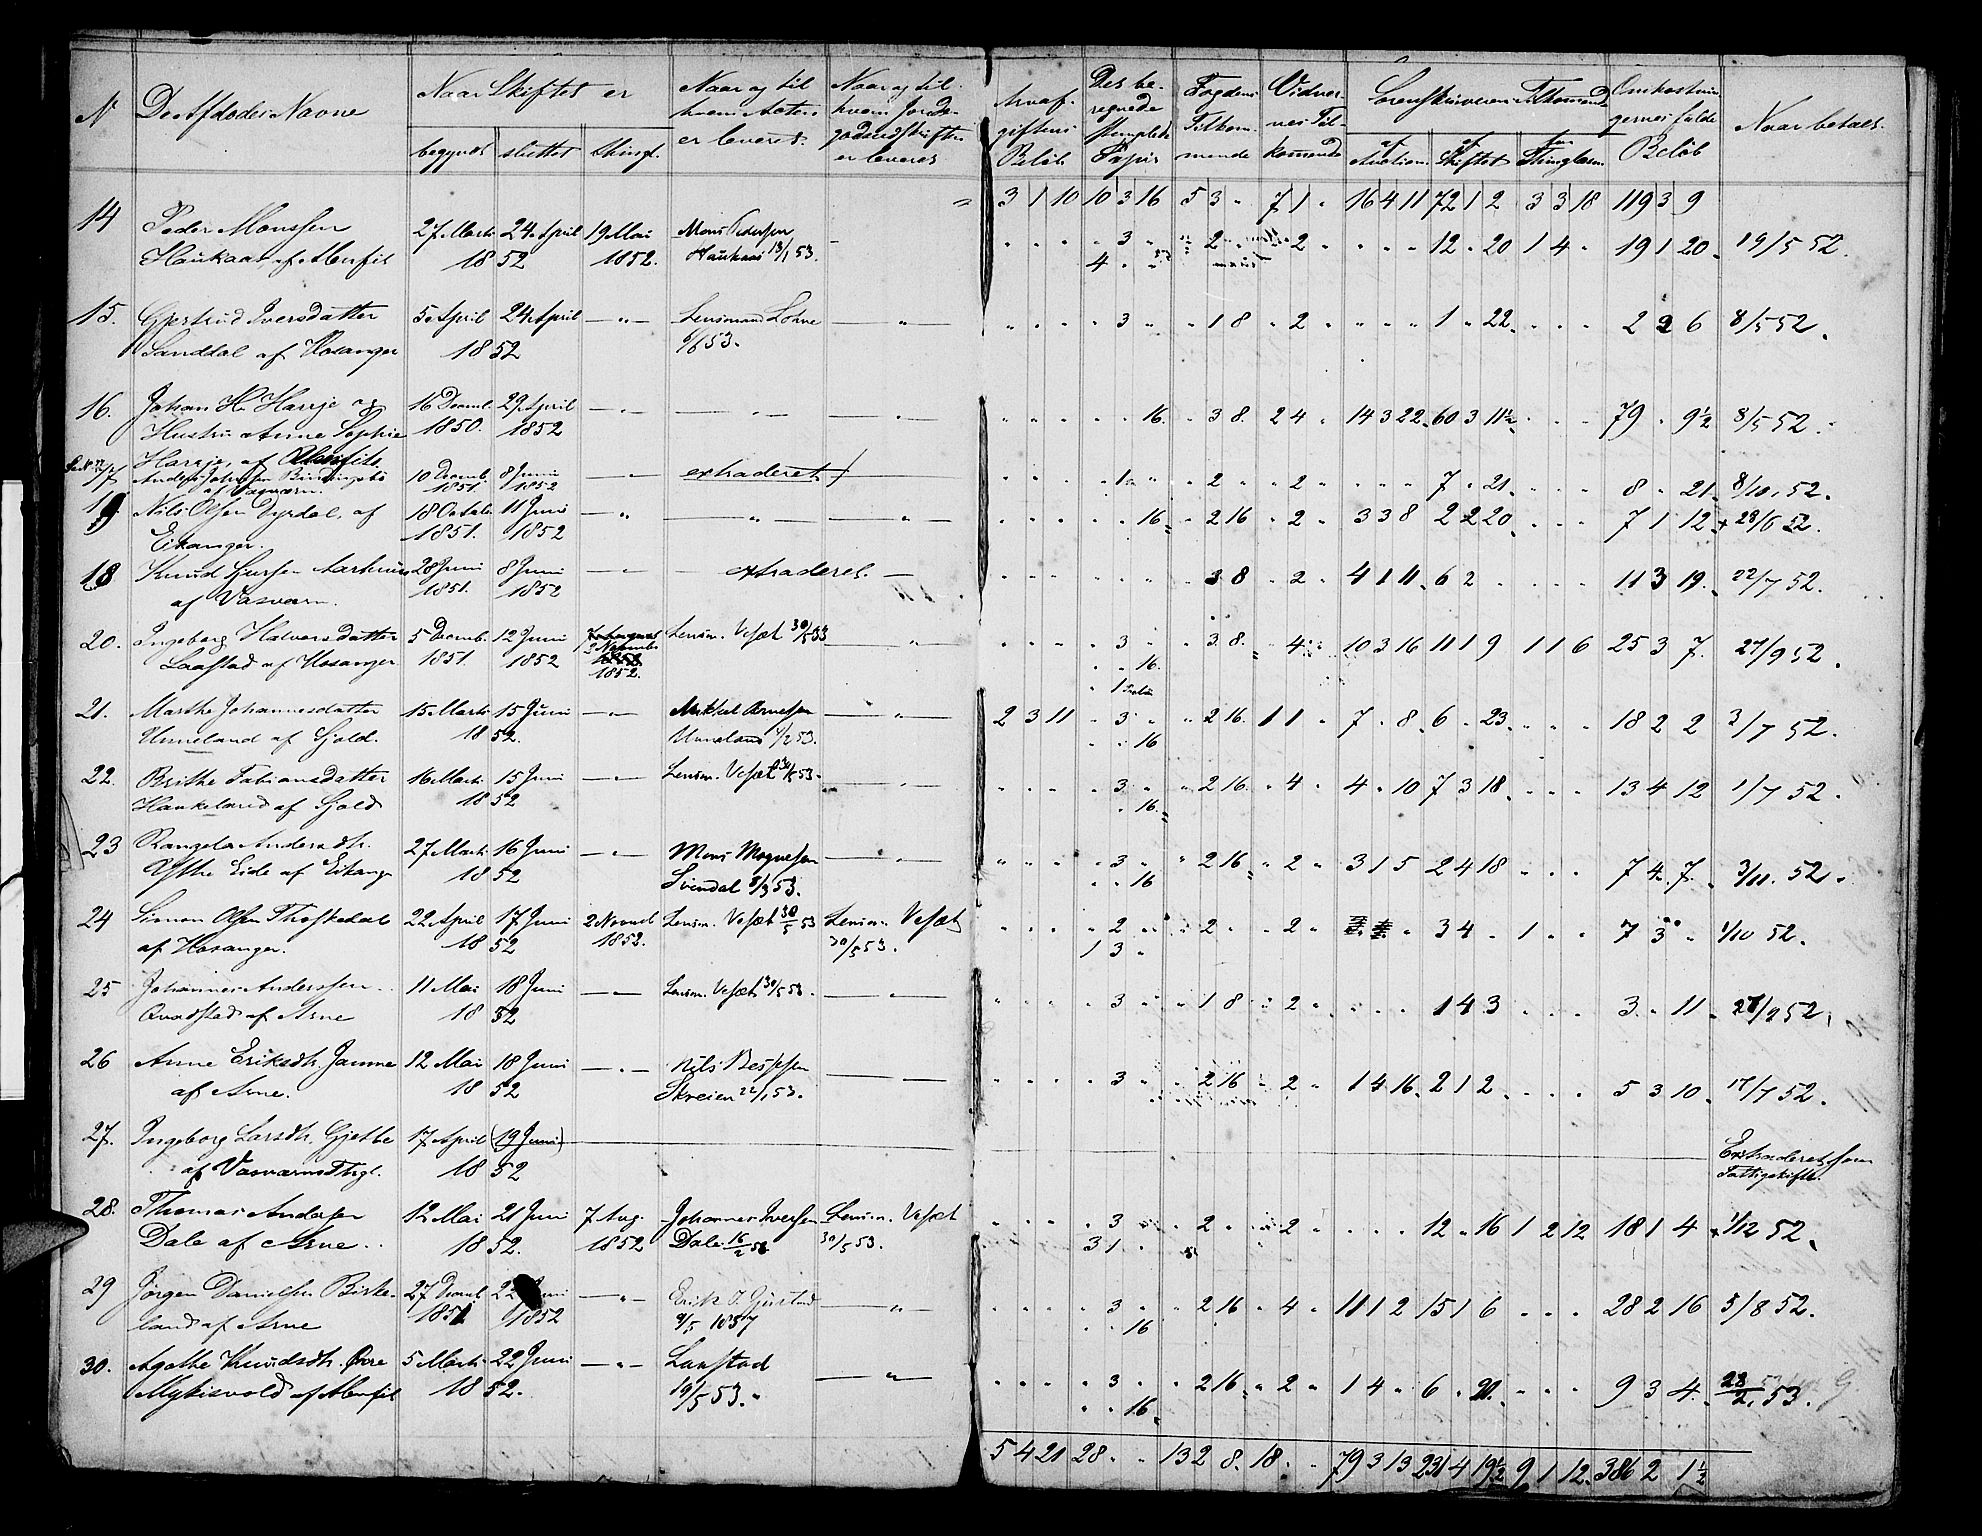 N De Afdødes Navne Naar Skiftet er Naar og til hvem Acten er leveret. Naar og til hvem Jordegodsudskriften er leveret
begyndt sluttet thingl.
Arvafgiftens Beløb Det beregnede Stemplede Papir Fogdens Tilkommende Vidnernes Tilkommende Sorenskriverens Tilkommende Omkostningernes fulde Beløb Naar betalt.
af Auction af Skiftet for Thinglæsn.
3 1 10 10 3 16 5 3 " 7 1 " 16 4 11 72 1 2 3 3 18 119 3 9
14 Peder Monssen 27 Marts 24 April 19 Mai Mons Pedersen
Haukaas af Alenfit 1852 1852. Haukaas 13/1 53.
" " " " 3 " " 2 " " 2 " " " " 12 " 20 1 4 " 19 1 20 19/5 52.
4 "
15. Gjertrud Iversdatter 5 April 24 April — " — Lensmand Lohne — " —
Sanddal af Hosanger 1852 53.
" " " " 3 " " 1 8 " 2 " " " " 1 " 22 " " " 2 2 6 8/5 52.
16. Johan H. Harrje og 16 Decemb. 29 April — " — — " — — " —
Hustru Anne Sophie 1850. 1852
Harrje, af Alenfit.
" " " " " 16. " 3 8. 2 4 " 14 3 22 60 3 11½ " " " 79 " 9½ 8/5 52.
17 Anders Johnsen 10 Decemb. 8 Juni — " — extraderet
1851. 1852
" " " " 1 " " 2 " " 2 " " " " 7 " 21 " " " 8 " 21 8/10. 52.
19 Nils Olsen Dyrdal, af 18 Octob. 11 Juni — " — " — — " —
Eikanger. 1851. 1852
" " " " " 16 " 2 16 " 2 " 3 3 8 2 2 20 " " " 7 1 12 28/6 52.
18 Knud Sjursen Aarhuus 28 Juni 8 Juni — " — extraderet. —
af Vasværn. 1851. 1852
" " " " " " " 3 8 " 2 " 4 1 11 6 2 " " " " 11 3 19. 22/7 52.
20. Ingeborg Halvorsdatter 5 Decemb. 12 Juni 2 Novemb. Lensm. Vesæt 30/5 53 — " —
Laastad af Hosanger 1851. 1852 1852.
" " " " 3 " " 3 8. " 4 " 10 3 16 11 1 9 1 1 6 25 3 7. 27/9 52.
" " 16.
" 1
21. Marthe Johannesdatter 15 Marts 15 Juni — " — Mikkel Arnesen — " —
Unneland af Gjold. 1852. Unneland 1/2 53.
2 3 11 " 3 " " 2 16. 1 1 " 7 " 8 6 " 23 " " " 18 2 2 2/7 52.
" " 16
22. Brithe Fabiansdatter 16 Marts 15 Juni — " — Lensm. Vesæt 30/5 53. — " —
Haukeland af Gjold 1852
" " " " 3 " " 2 16. " 4 " 4 " 10 7 3 18 " " " 13 4 12 1/7 52.
" 16.
23 Rangela Andersdtr. 27 Marts 16 Juni — " — Mons Mognesen — " —
Ytthe Eide af Eikanger 1852 Svendal 8/3 53.
" " " " 3 " " 2 16 " 2 " 3 1 5 2 4 18 " " " 7 4 7. 3/11. 52.
" " 16
24 Simon Olsen Thoskedal 22 April 17 Juni 2 Novmb. Lensm. Vesæt 30/5 53 Lensm. Vesæt
af Hosanger. 1852 1852. 30/5 53.
" " " " 2 " " 2 " " 2 " " 3 4 " 1 " " 7 3 " 1/10 52.
1 3 "
25 Johannes Anderssen 11 Mai 18 Juni — " — Lensm. Vesæt 30/5 53. — " —
Qvadstad af Arne 1852
" " " " 3 " " 1 8 " 2 " " " " 1 4 3 " " " 3 " 11 27/9 52.
26 Anne Eriksdtr. Janne 12 Mai 18 Juni — " — Nils Bessesen — " —
af Arne. 1852 Skreien 22/1 53.
" " " " 3 " " 2 16 " 2 " 1 4 16. 2 1 2 " " " 5 3 10 17/7 52.
27. Ingeborg Larsdtr. Gjetle 17 April (19 Juni) Extraderet som
af Vasværns Thgl. 1852 Fattigskifte.
28. Thomas Andersen 12 Mai 21 Juni 7 Aug. Johannes Iversen Lensm. Vesæt
Dale af Arne 1852. 1852 Dale 16/2 53 30/5 53.
" " " " 3 " " 2 " " 2 " " " " 12 " 16 1 2 12 18 1 4 1/12 52.
3 1 "
29 Jørgen Danielsen Birke- 27 Decmb. 22 Juni — " — Erik — " —
land af Arne 1851 1852 9/5 1857
" " " " 3 " " 2 16 " 4 " 11 1 2 15 1 6 " " " 28 2 16 5/8 52.
" " 16
30. Agathe Knudsdtr. Øvre 5 Marts 22 Juni — " — Laastad — " —
Mykisvold af Alenfit 1852. 19/5 53.
" " " " 3 " " 2 16 " 2 " 1 4 " 6 " 21. " " " 9 3 4. 28/2. 53.
" " 16.
5 4 21 28 " " 13 2 8. 18 " " 79 3 13 231 4 19½ 9 1 12. 386 2 1½